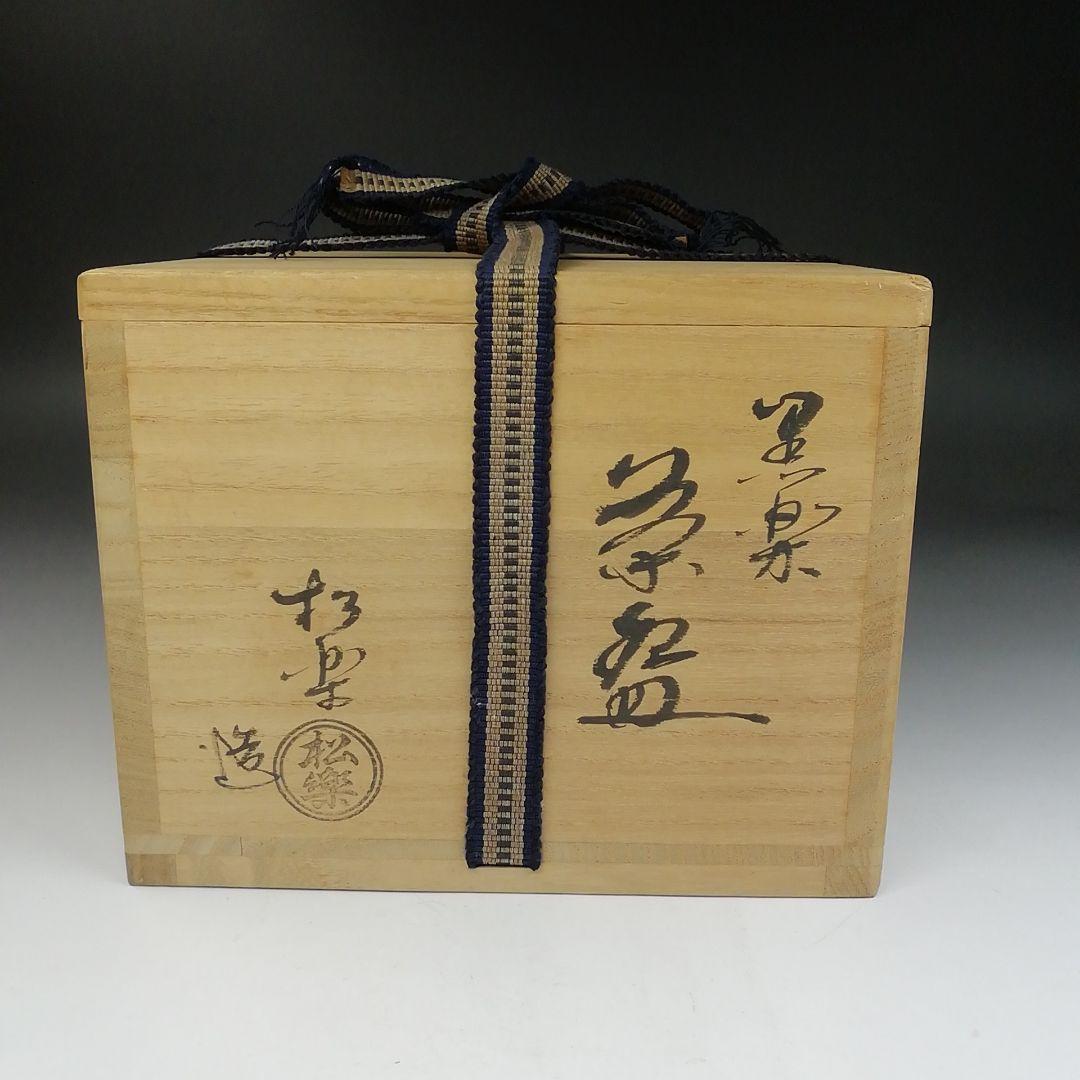 黒楽
茶盌
松楽
造
松樂